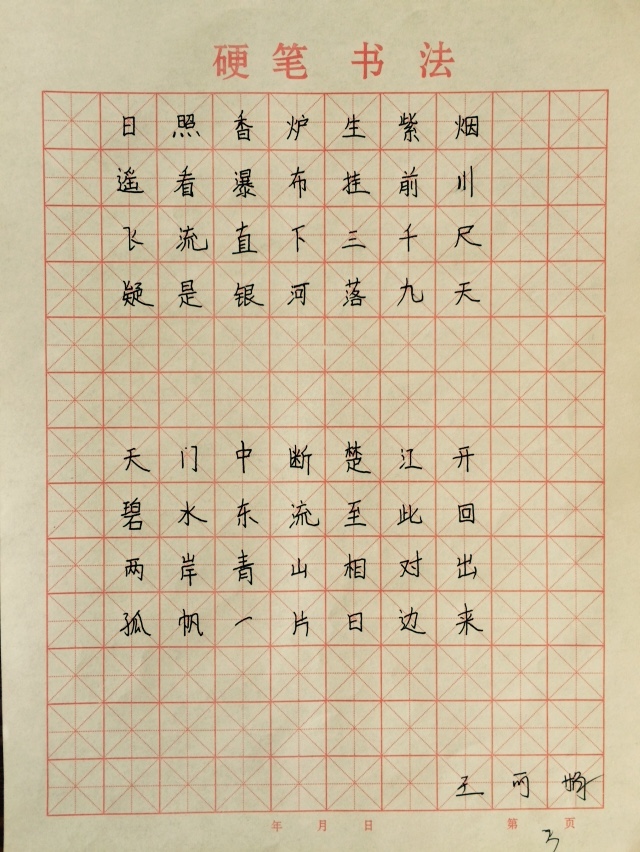 硬笔书法
日照香炉生紫烟
遥看瀑布挂前川
飞流直下三千尺
疑是银河落九天
天门中断楚江开
碧水东流至此回
两岸青山相对出
孤帆一片日边来
王
年 月 日 第 页